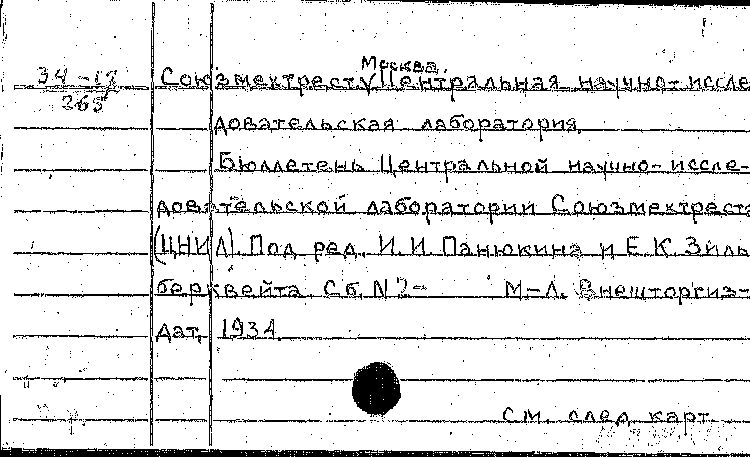 Москва.
34-17 Союзмехтрест. Центральная научно-иссле-
265 довательская лаборатория.
Бюллетень Центральной научно-иссле-
довательской лаборатории Союзмехтреста
(ЦНИЛ). Под ред. И.И. Панюкина и Е.К. Зиль
берквейта. Сб. N 2- М-Л. Внешторгиз-
дат, 1934
см. след. карт.